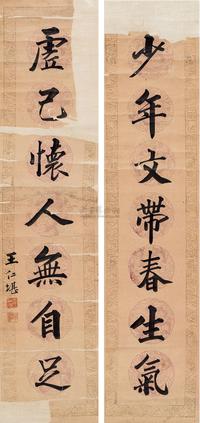 少年文帶春生氣
虛己懷人無自足
王仁堪